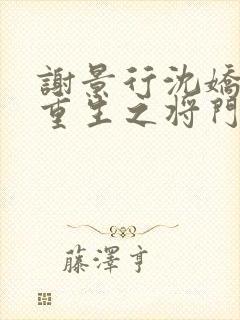 謝景行沈嬌
重生之将門
藤澤亨